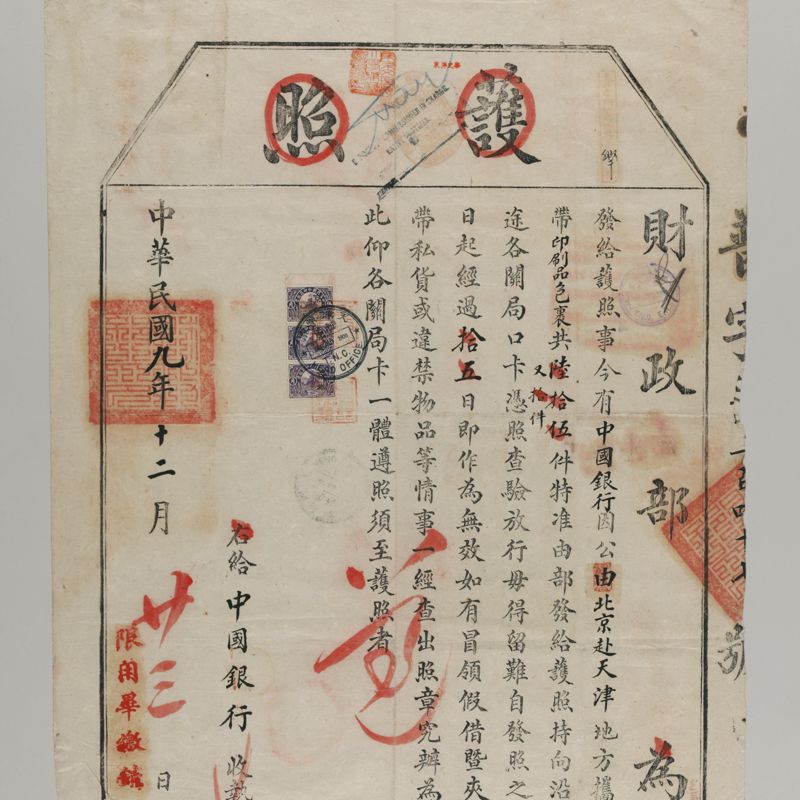 護照
財政部為
發給護照事今有中國銀行因公由北京赴天津地方攜
帶印刷品包裹共陸拾伍件特准由部發給護照持向沿
又拾件
途各關局口卡憑照查驗放行毋得留難自發照之
日起經過拾五日即作為無效如有冒領假借暨夾
帶私貨或違禁物品等情事一經查出照章究辦為
此仰各關局卡一體遵照須至護照者
右給中國銀行收執
中華民國九年十二月廿三日
限用畢繳銷
HEAD OFFICE